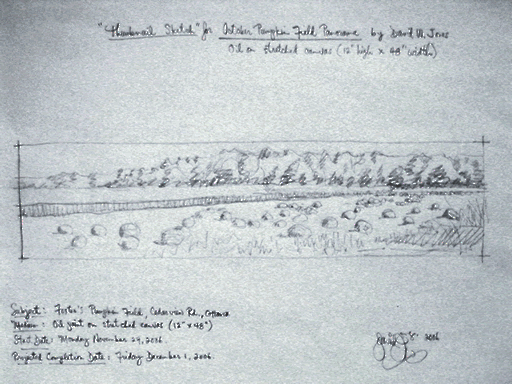 "Thumbnail Sketch" for October Pumpkin Field Panorama by David W. Jones
Oil on stretched canvas (12" high x 48" width)
Subject: Foster's Pumpkin Field, Cedarview Rd., Ottawa
Medium: Oil paint on stretched canvas (12" x 48")
Start Date: Monday November 24, 2006.
Projected Completion Date: Friday December 1, 2006.
2006